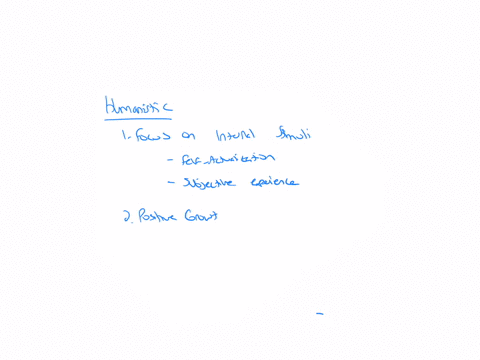 Humanistic
1. Focus on Internal Stimuli
- Self-Actualization
- Subjective experience
2. Positive Growt